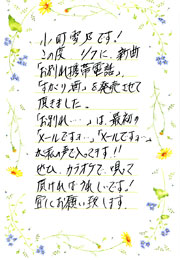 小町雪乃です!
この度 1/7に、新曲
「お別れ携帯電話」、
「すがり雨」を発売させて
頂きました。
「お別れ…」は、最初の
「メールですョ…」「メールですョ…」
が私の声で入ってます!!
ぜひ、カラオケで、唄って
頂ければうれしいです!
宜しくお願い致します。